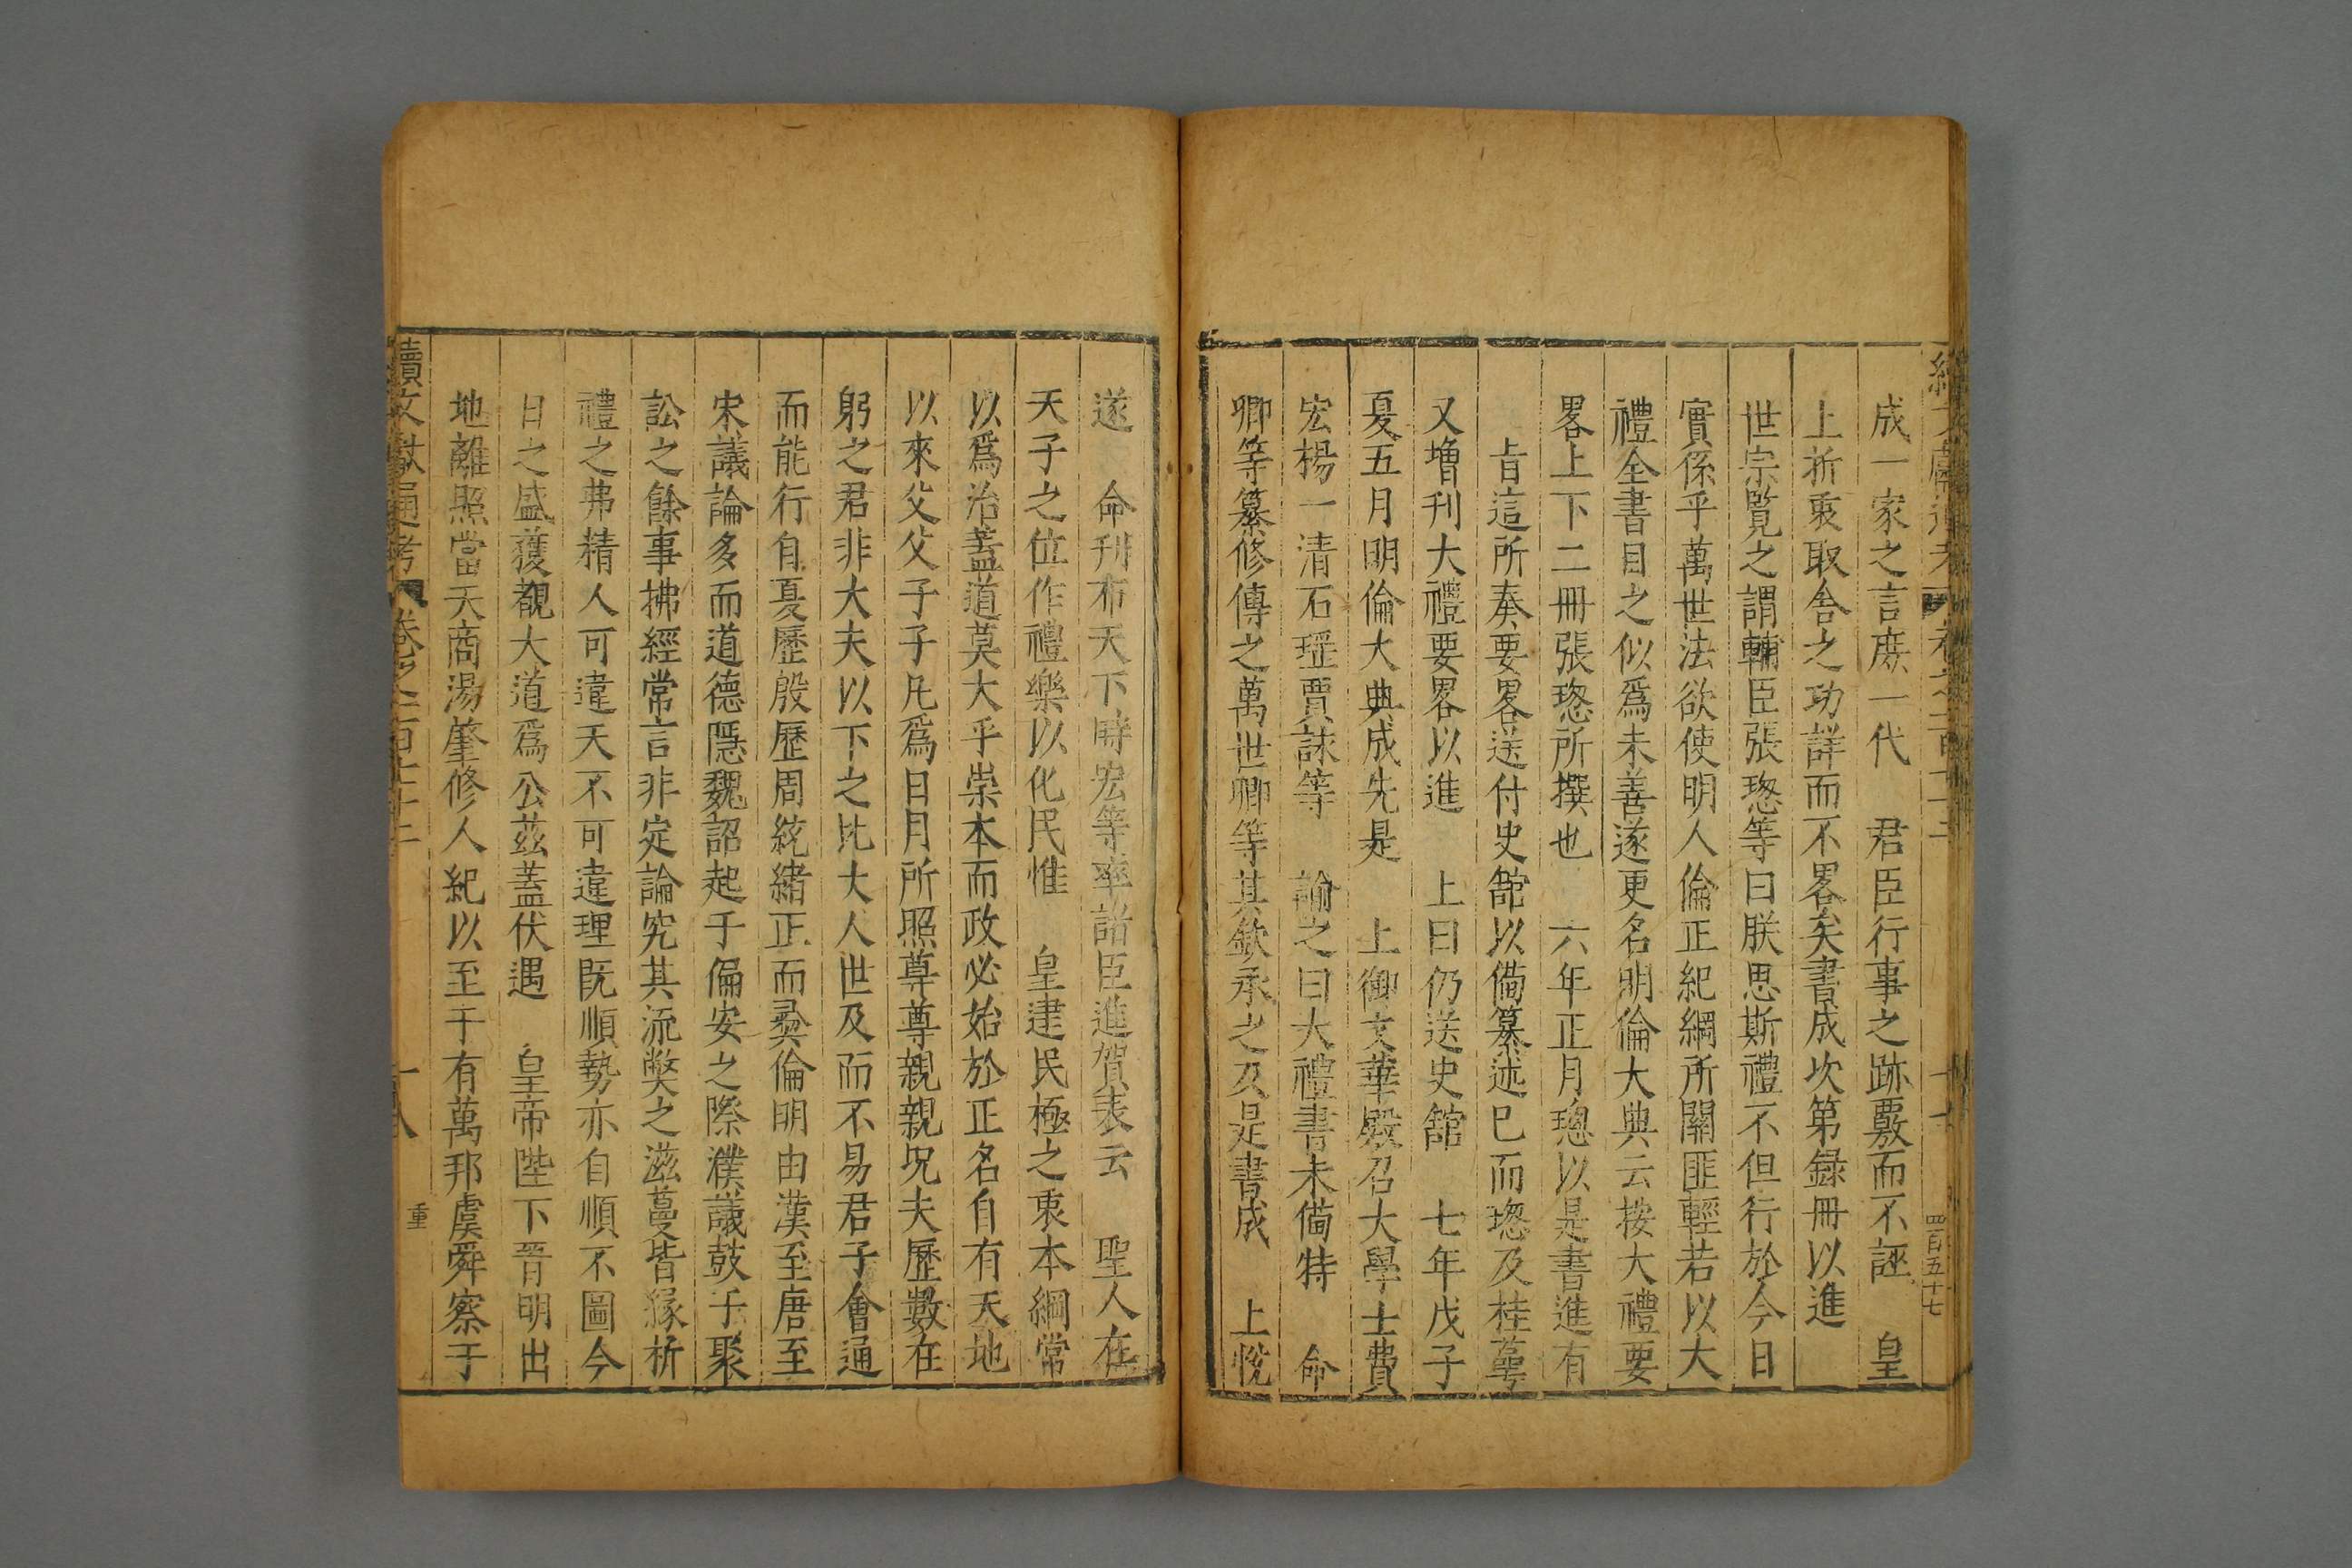 成一家之言庶一代　君臣行事之跡覈而不誣　皇
上折衷取舍之功詳而不畧矣書成次第録冊以進
世宗覽之謂輔臣張璁等曰朕思斯禮不但行於今日
實係乎萬世法欲使明人倫正紀綱所關匪輕若以大
禮全書目之似爲未善遂更名明倫大典云按大禮要
畧上下二冊張璁所撰也　六年正月璁以是書進有
旨這所奏要畧送付史舘以備纂述已而璁及桂萼
又增刊大禮要畧以進　上曰仍送史舘　七年戊子
夏五月明倫大典成先是　上御文華殿召大學士費
宏楊一清石瑶賈詠等　諭之曰大禮書未備特　命
卿等纂修傳之萬世卿等其欽承之及是書成　上悅
四百五十七
遂　命刊布天下時宏等率諸臣進賀表云　聖人在
天子之位作禮樂以化民惟　皇建民極之衷本綱常
以爲治蓋道莫大乎崇本而政必始於正名自有天地
以來父父子子凡爲日月所照尊尊親親况夫歷數在
躬之君非大夫以下之比大人世及而不易君子會通
而能行自夏歷殷歷周統緒正而彛倫明由漢至唐至
宋議論多而道德隱魏詔起于偏安之際濮議鼓于聚
訟之餘事拂經常言非定論究其流獘之滋蔓皆緣析
禮之弗精人可違天不可違理既順勢亦自順不圖今
日之盛獲覩大道爲公茲蓋伏遇　皇帝陛下晉明出
地離照當天商湯肇修人紀以至于有萬邦虞舜察于
續文獻通考　卷之二百七十三　十八　重